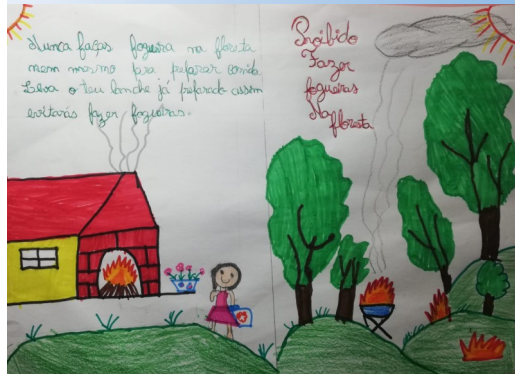 Nunca faças fogueira na floresta
nem mesmo para preparar comida.
Leva o teu lanche já preparado assim
evitarás fazer fogueiras.
Proibido
Fazer
fogueiras
Na
floresta